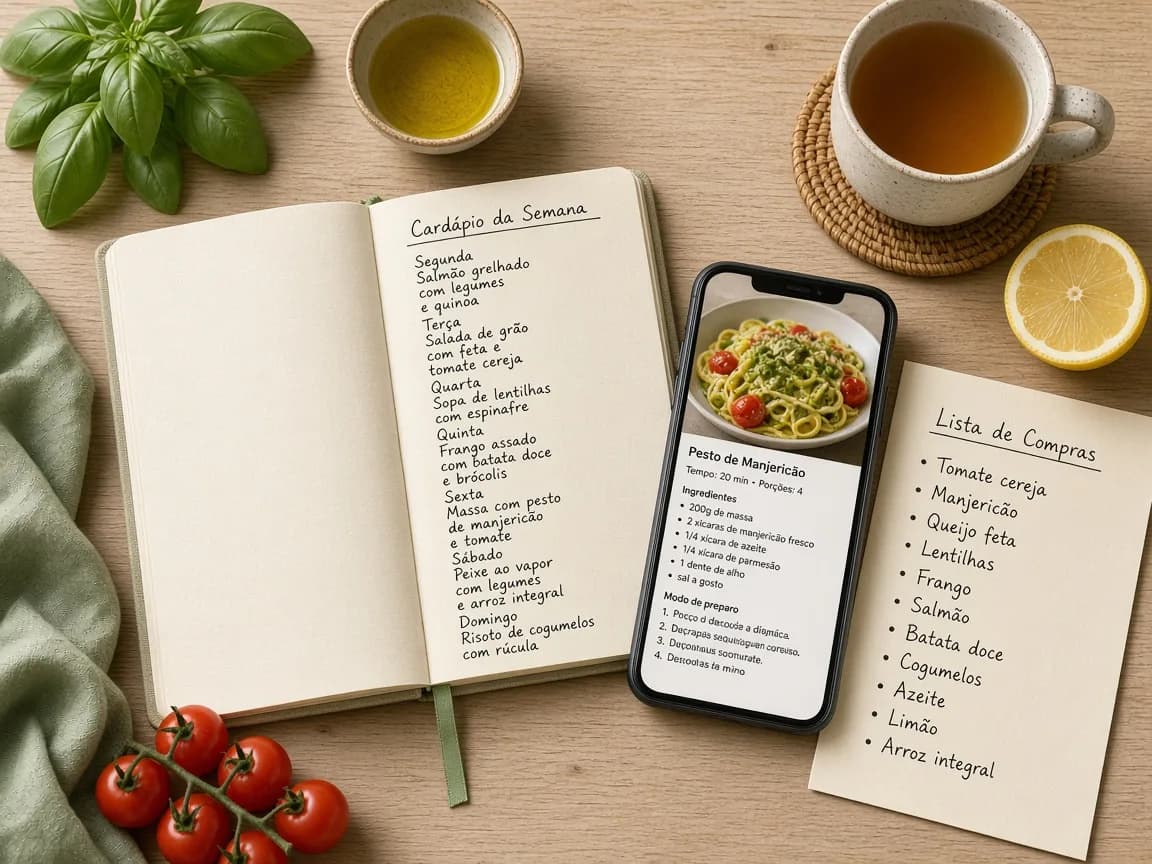 Cardápio da Semana
Segunda
Salmão grelhado
com legumes
e quinoa
Terça
Salada de grão
com feta e
tomate cereja
Quarta
Sopa de lentilhas
com espinafre
Quinta
Frango assado
com batata doce
e brócolis
Sexta
Massa com pesto
de manjericão
e tomate
Sábado
Peixe ao vapor
com legumes
e arroz integral
Domingo
Risoto de cogumelos
com rúcula
Pesto de Manjericão
Tempo: 20 min • Porções: 4
Ingredientes
• 200g de massa
• 2 xícaras de manjericão fresco
• 1/4 xícara de azeite
• 1/4 xícara de parmesão
• 1 dente de alho
• sal a gosto
Modo de preparo
1.
2.
3.
4.
Lista de Compras
• Tomate cereja
• Manjericão
• Queijo feta
• Lentilhas
• Frango
• Salmão
• Batata doce
• Cogumelos
• Azeite
• Limão
• Arroz integral